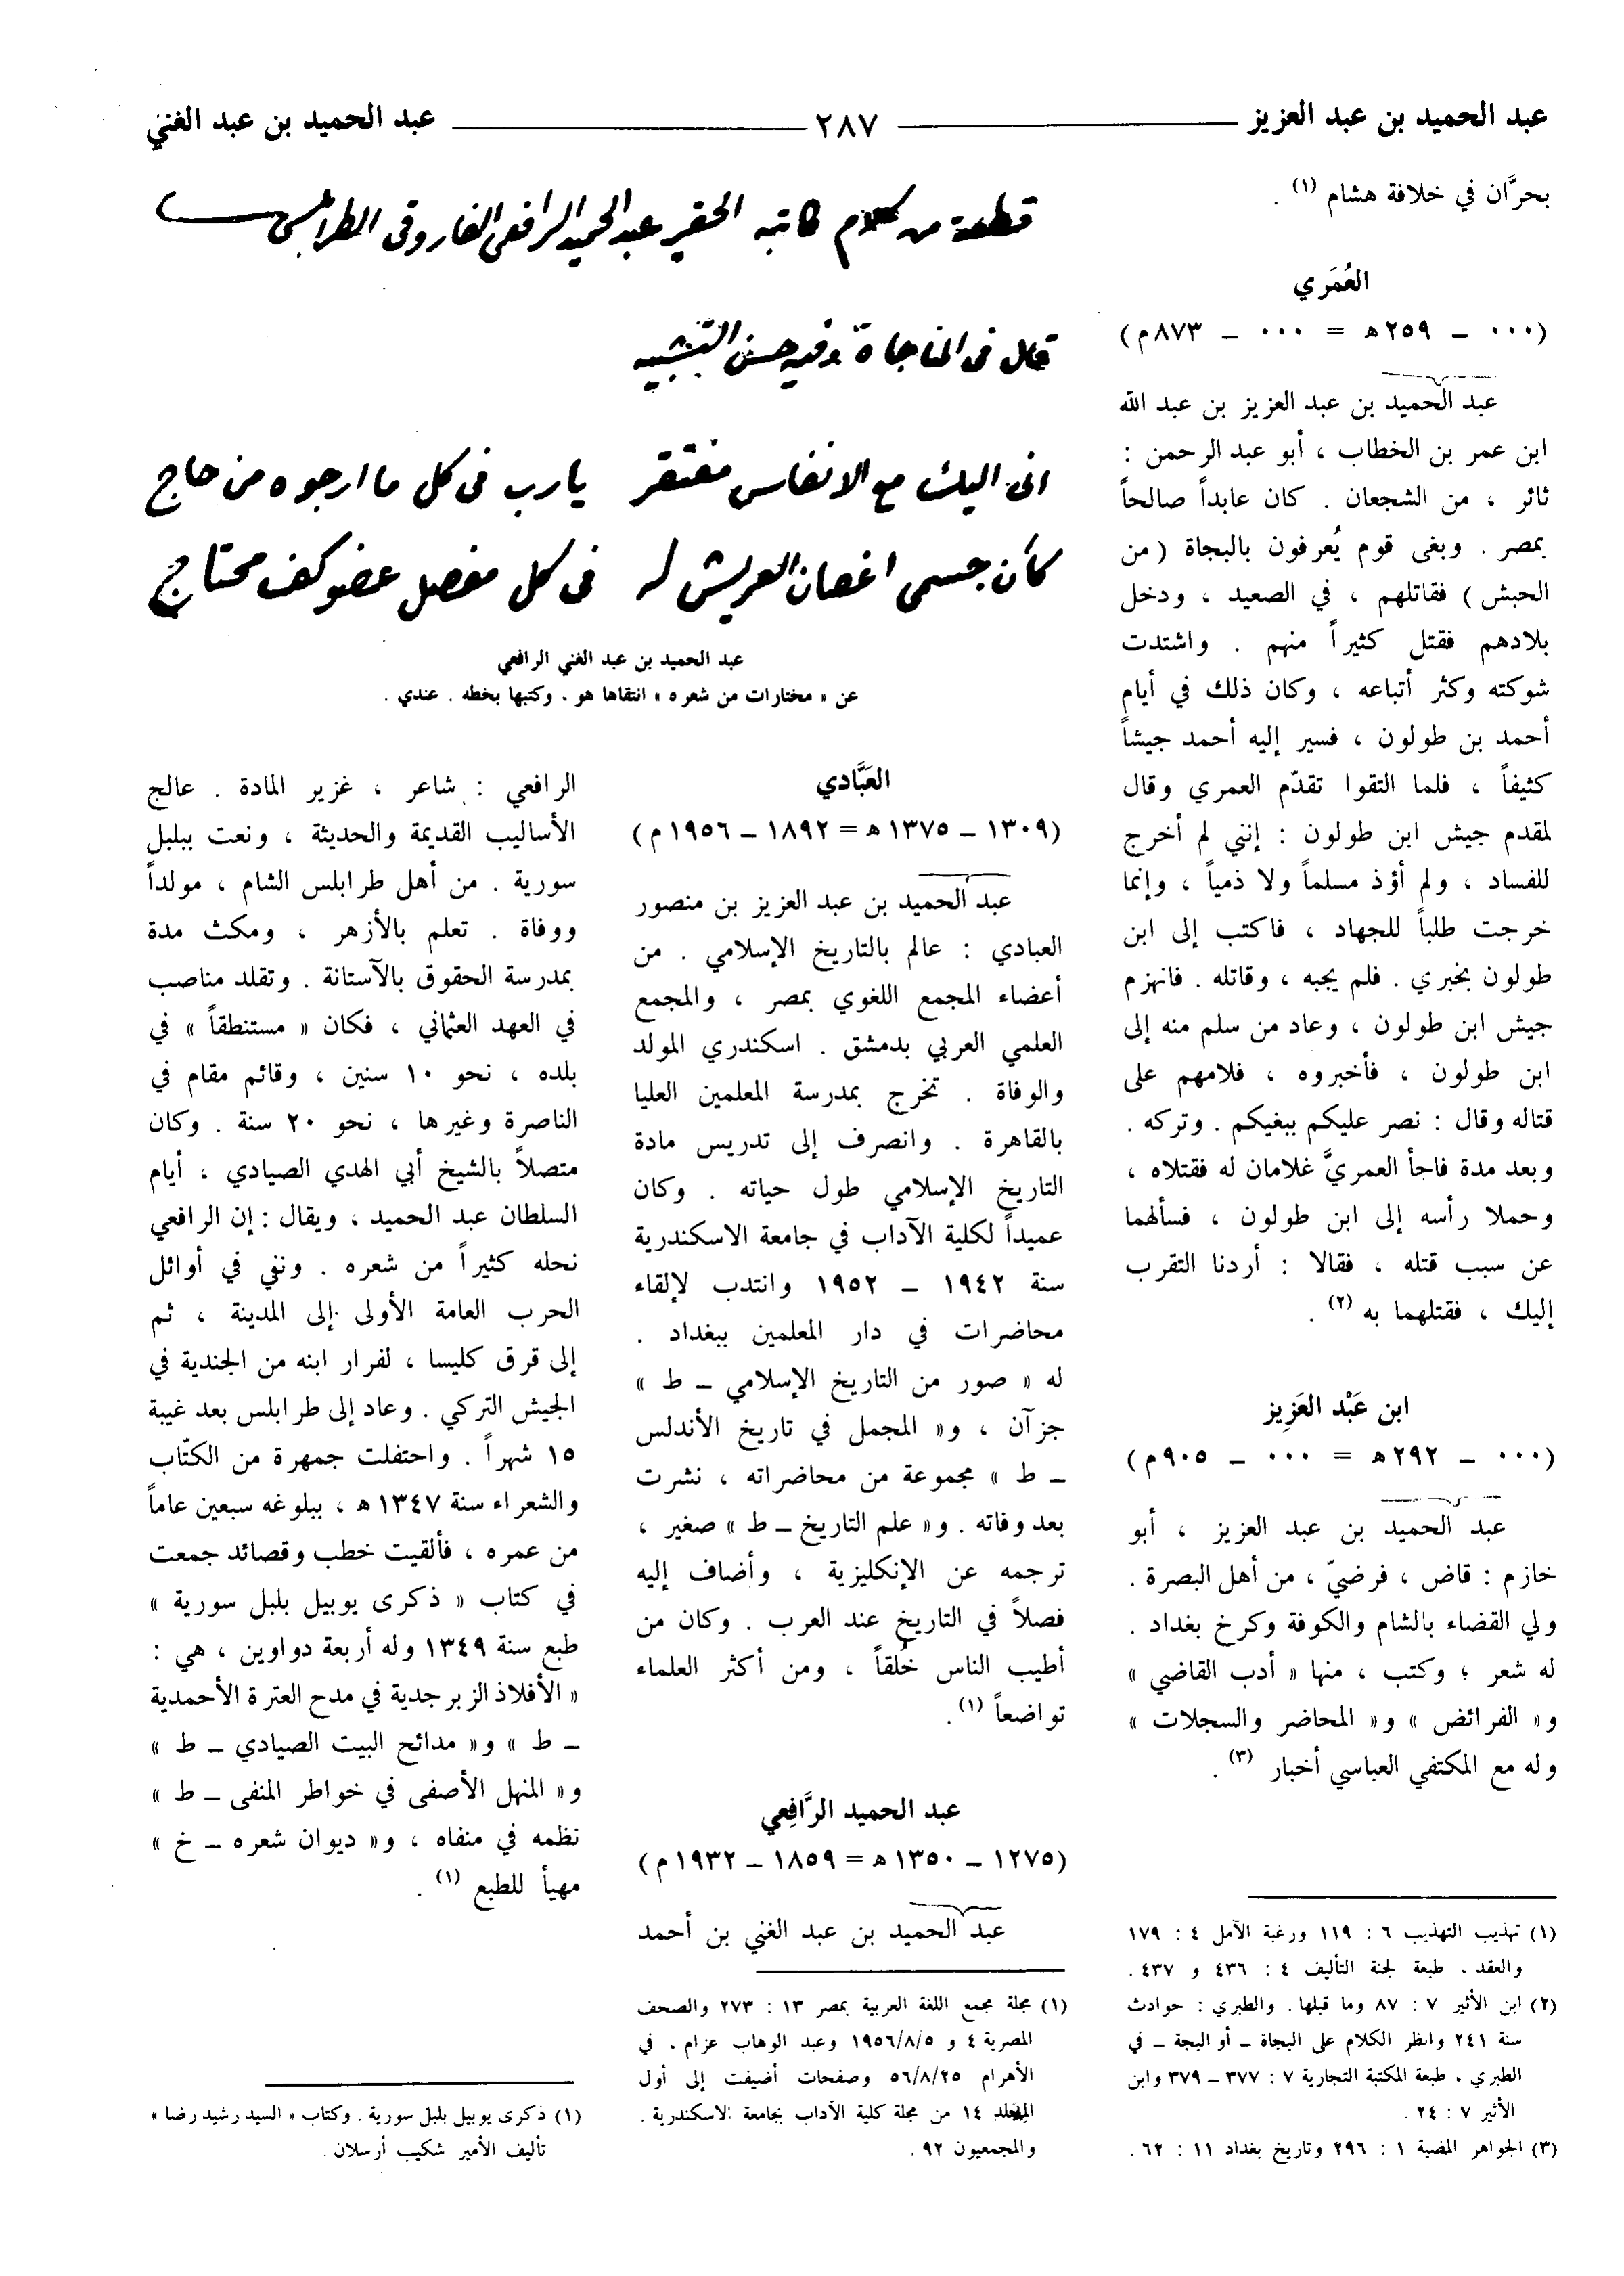 عبد الحميد بن عبد العزيز ٢٨٧ عبد الحميد بن عبد الغني
بحرَّان في خلافة هشام (١) .
العُمَري
(٠٠٠ – ٢٥٩ هـ = ٠٠٠ – ٨٧٣ م)
عبد الحميد بن عبد العزيز بن عبد الله
ابن عمر بن الخطاب ، أبو عبد الرحمن :
ثائر ، من الشجعان . كان عابداً صالحاً
بمصر . وبغى قوم يُعرفون بالبجاة (من
الحبش) فقاتلهم ، في الصعيد ، ودخل
بلادهم فقتل كثيراً منهم . واشتدت
شوكته وكثر أتباعه ، وكان ذلك في أيام
أحمد بن طولون ، فسير إليه أحمد جيشاً
كثيفاً ، فلما التقوا تقدّم العمري وقال
لمقدم جيش ابن طولون : إنني لم أخرج
للفساد ، ولم أؤذ مسلماً ولا ذمياً ، وإنما
خرجت طلباً للجهاد ، فاكتب إلى ابن
طولون بخبري . فلم يجبه ، وقاتله . فانهزم
جيش ابن طولون ، وعاد من سلم منه إلى
ابن طولون ، فأخبروه ، فلامهم على
قتاله وقال : نصر عليكم ببغيكم . وتركه .
وبعد مدة فاجأ العمريَّ غلامان له فقتلاه ،
وحملا رأسه إلى ابن طولون ، فسألهما
عن سبب قتله ، فقالا : أردنا التقرب
إليك ، فقتلهما به (٢) .
ابن عَبْد العَزِيز
(٠٠٠ – ٢٩٢ هـ = ٠٠٠ – ٩٠٥ م)
عبد الحميد بن عبد العزيز ، أبو
خازم : قاض ، فرضيّ ، من أهل البصرة .
ولي القضاء بالشام والكوفة وكرخ بغداد .
له شعر ؛ وكتب ، منها « أدب القاضي »
و« الفرائض » و« المحاضر والسجلات »
وله مع المكتفي العباسي أخبار (٣) .
(١) تهذيب التهذيب ٦ : ١١٩ ورغبة الآمل ٤ : ١٧٩
والعقد . طبعة لجنة التأليف ٤ : ٤٣٦ و ٤٣٧ .
(٢) ابن الأثير ٧ : ٨٧ وما قبلها . والطبري : حوادث
سنة ٢٤١ وانظر الكلام على البجاة – أو البجة – في
الطبري ، طبعة المكتبة التجارية ٧ : ٣٧٧ – ٣٧٩ وابن
الأثير ٧ : ٢٤ .
(٣) الجواهر المضية ١ : ٢٩٦ وتاريخ بغداد ١١ : ٦٢ .
قطعة من كلام كاتبه الحقير عبد الحميد الرافعي الفاروقي الطرابلسي
قال في المناجاة وفيه حسن التشبيه
اني اليك مع الانفاس مفتقر يا رب في كل ما ارجوه من حاج
كأن جسمي اغصان العريش له في كل مفصل عضو كف محتاج
عبد الحميد بن عبد الغني الرافعي
عن « مختارات من شعره » انتقاها هو . وكتبها بخطه . عندي .
العَبَّادي
(١٣٠٩ – ١٣٧٥ هـ = ١٨٩٢ – ١٩٥٦ م)
عبد الحميد بن عبد العزيز بن منصور
العبادي : عالم بالتاريخ الإسلامي . من
أعضاء المجمع اللغوي بمصر ، والمجمع
العلمي العربي بدمشق . اسكندري المولد
والوفاة . تخرج بمدرسة المعلمين العليا
بالقاهرة . وانصرف إلى تدريس مادة
التاريخ الإسلامي طول حياته . وكان
عميداً لكلية الآداب في جامعة الاسكندرية
سنة ١٩٤٢ – ١٩٥٢ وانتدب لإلقاء
محاضرات في دار المعلمين ببغداد .
له « صور من التاريخ الإسلامي – ط »
جزآن ، و« المجمل في تاريخ الأندلس
– ط » مجموعة من محاضراته ، نشرت
بعد وفاته . و« علم التاريخ – ط » صغير ،
ترجمه عن الإنكليزية ، وأضاف إليه
فصلاً في التاريخ عند العرب . وكان من
أطيب الناس خُلقاً ، ومن أكثر العلماء
تواضعاً (١) .
عبد الحميد الرَّافِعي
(١٢٧٥ – ١٣٥٠ هـ = ١٨٥٩ – ١٩٣٢ م)
عبد الحميد بن عبد الغني بن أحمد
(١) مجلة مجمع اللغة العربية بمصر ١٣ : ٢٧٣ والصحف
المصرية ٤ و ١٩٥٦/٨/٥ وعبد الوهاب عزام . في
الأهرام ٥٦/٨/٢٥ وصفحات أضيفت إلى أول
المجلد ١٤ من مجلة كلية الآداب بجامعة الاسكندرية .
والمجمعيون ٩٢ .
الرافعي : شاعر ، غزير المادة . عالج
الأساليب القديمة والحديثة ، ونعت ببلبل
سورية . من أهل طرابلس الشام ، مولداً
ووفاة . تعلم بالأزهر ، ومكث مدة
بمدرسة الحقوق بالآستانة . وتقلد مناصب
في العهد العثماني ، فكان « مستنطقاً » في
بلده ، نحو ١٠ سنين ، وقائم مقام في
الناصرة وغيرها ، نحو ٢٠ سنة . وكان
متصلاً بالشيخ أبي الهدي الصيادي ، أيام
السلطان عبد الحميد ، ويقال : إن الرافعي
نحله كثيراً من شعره . ونفي في أوائل
الحرب العامة الأولى إلى المدينة ، ثم
إلى قرق كليسا ، لفرار ابنه من الجندية في
الجيش التركي . وعاد إلى طرابلس بعد غيبة
١٥ شهراً . واحتفلت جمهرة من الكتّاب
والشعراء سنة ١٣٤٧ هـ ، ببلوغه سبعين عاماً
من عمره ، فألقيت خطب وقصائد جمعت
في كتاب « ذكرى يوبيل بلبل سورية »
طبع سنة ١٣٤٩ وله أربعة دواوين ، هي :
« الأفلاذ الزبرجدية في مدح العترة الأحمدية
– ط » و« مدائح البيت الصيادي – ط »
و« المنهل الأصفى في خواطر المنفى – ط »
نظمه في منفاه ، و« ديوان شعره – خ »
مهيأ للطبع (١) .
(١) ذكرى يوبيل بلبل سورية . وكتاب « السيد رشيد رضا »
تأليف الأمير شكيب أرسلان .